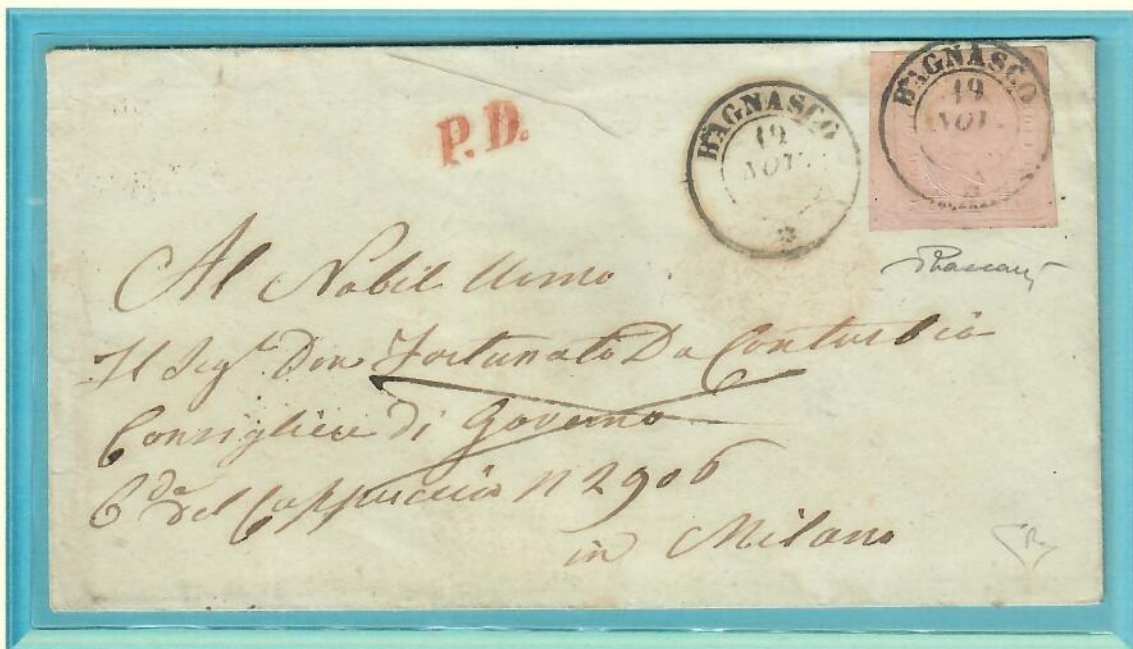 P.D.
BAGNASCO
19
NOV.
BAGNASCO
19
NOV.
Al Nobil Uomo
Il Sigr. Don Fortunato Da Conturbia
Consigliere di Governo
Cda del Cappuccio N 2906
in Milano